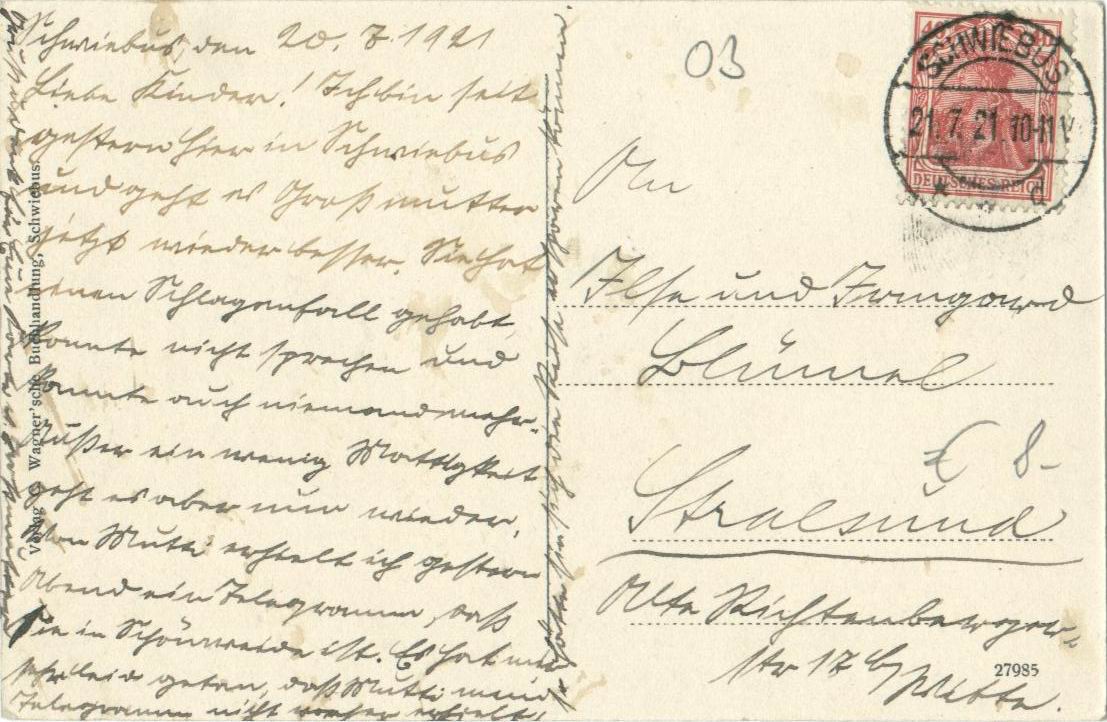 Schwiebus, den 20. 7. 1921
Liebe Kinder! Ich bin seit
gestern hier in Schwiebus
und geht es Großmutter
jetzt wieder besser. Sie hat
einen Schlaganfall gehabt,
konnte nicht sprechen und
kannte auch niemand mehr.
Außer ein wenig Mattigkeit
geht es aber nun wieder.
Von Mutti erhielt ich gestern
Abend ein Telegramm, daß
sie in Schönweide ist. Es hat mir
sehr leid getan, daß Mutti mein
Telegramm nicht vorher erhielt,
Verlag G. Wagner'sche Buchhandlung, Schwiebus.
03
SCHWIEBUS
21.7.21.10-11V
* d
DEUTSCHES REICH
An
Ilse und Irmgard
Blümel
€ 8-
Stralsund
Alte Richtenberger-
str 17 b/Witte.
27985